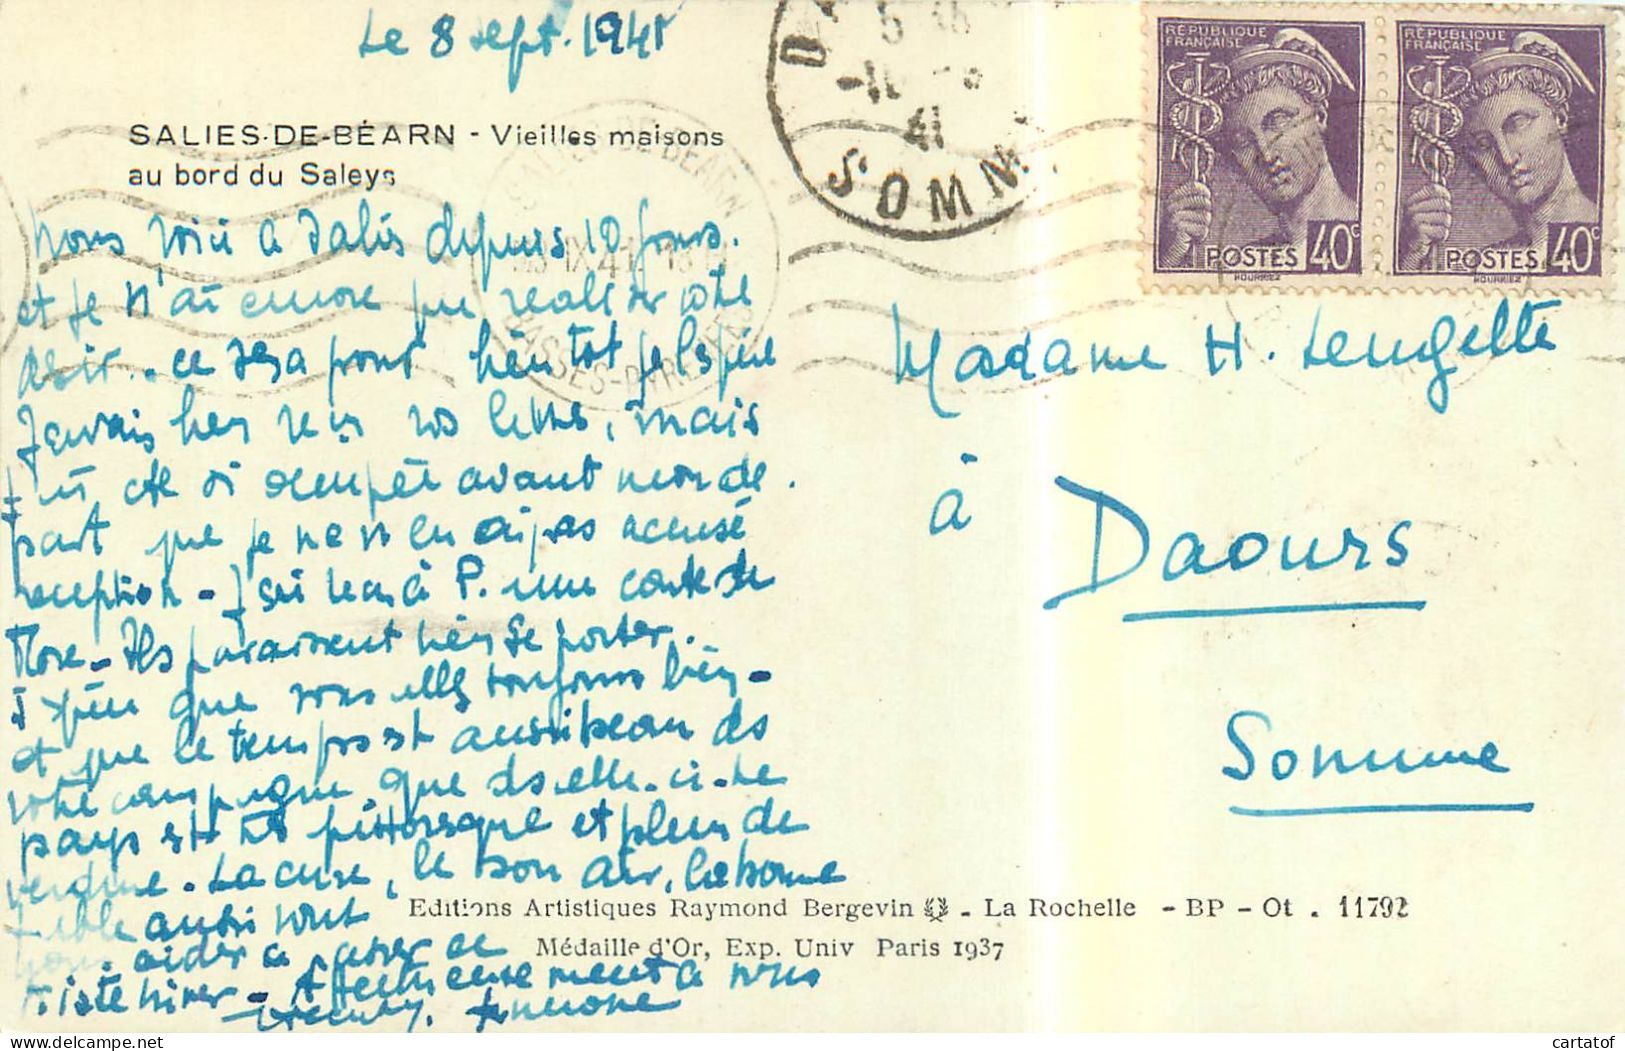 Le 8 sept. 1941
SALIES-DE-BÉARN - Vieilles maisons
au bord du Saleys
Nous voici à Salies depuis 10 jours.
et je n'ai encore pu realiser votre
désir. ce sera pour bientôt je l'espère
J'avais bien reçu vos lettres, mais
j'ai été si occupée avant mon dé
part que je ne vs en ai pas accusé
reception - J'ai reçu à P. une carte de
Ils paraissent bien se porter.
J'espère que vous allez toujours bien -
et que le temps est aussi beau ds
votre campagne que ds celle-ci - Le
pays est très pittoresque et plein de
verdure. La cure, le bon air, la bonne
table aussi vont
nous aider à passer ce
triste hiver - Affectueusement à vous
Madame H. Lengellé
à
Daours
Somme
RÉPUBLIQUE
FRANÇAISE
POSTES 40c
HOURRIEZ
RÉPUBLIQUE
FRANÇAISE
POSTES 40c
HOURRIEZ
41
SOMME
SALIES DE BEARN
BASSES-PYRENEES
Editions Artistiques Raymond Bergevin - La Rochelle - BP - Ot . 11792
Médaille d'Or, Exp. Univ Paris 1937
cartatof